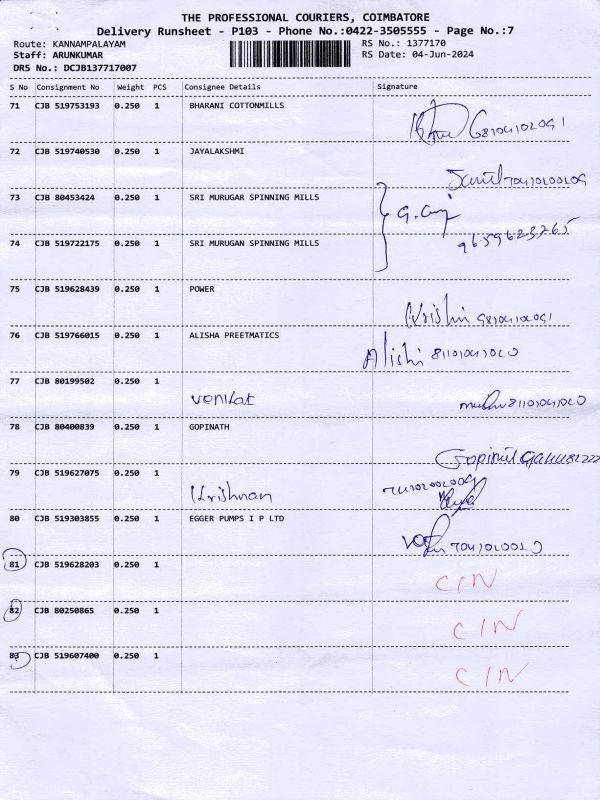 THE PROFESSIONAL COURIERS, COIMBATORE
Delivery Runsheet - P103 - Phone No.:0422-3505555 - Page No.:7
Route: KANNAMPALAYAM RS No.: 1377170
Staff: ARUNKUMAR RS Date: 04-Jun-2024
DRS No.: DCJB137717007
S No Consignment No Weight PCS Consignee Details Signature
71 CJB 519753193 0.250 1 BHARANI COTTONMILLS
72 CJB 519740530 0.250 1 JAYALAKSHMI
73 CJB 80453424 0.250 1 SRI MURUGAR SPINNING MILLS
74 CJB 519722175 0.250 1 SRI MURUGAN SPINNING MILLS 9659623765
75 CJB 519628439 0.250 1 POWER
Krishn
76 CJB 519766015 0.250 1 ALISHA PREETMATICS
Alishi
77 CJB 80199502 0.250 1
Venkat
78 CJB 80400839 0.250 1 GOPINATH
79 CJB 519627075 0.250 1
Krishnan
80 CJB 519303855 0.250 1 EGGER PUMPS I P LTD
81 CJB 519628203 0.250 1
C/N
82 CJB 80250865 0.250 1
C/N
83 CJB 519607400 0.250 1
C/N